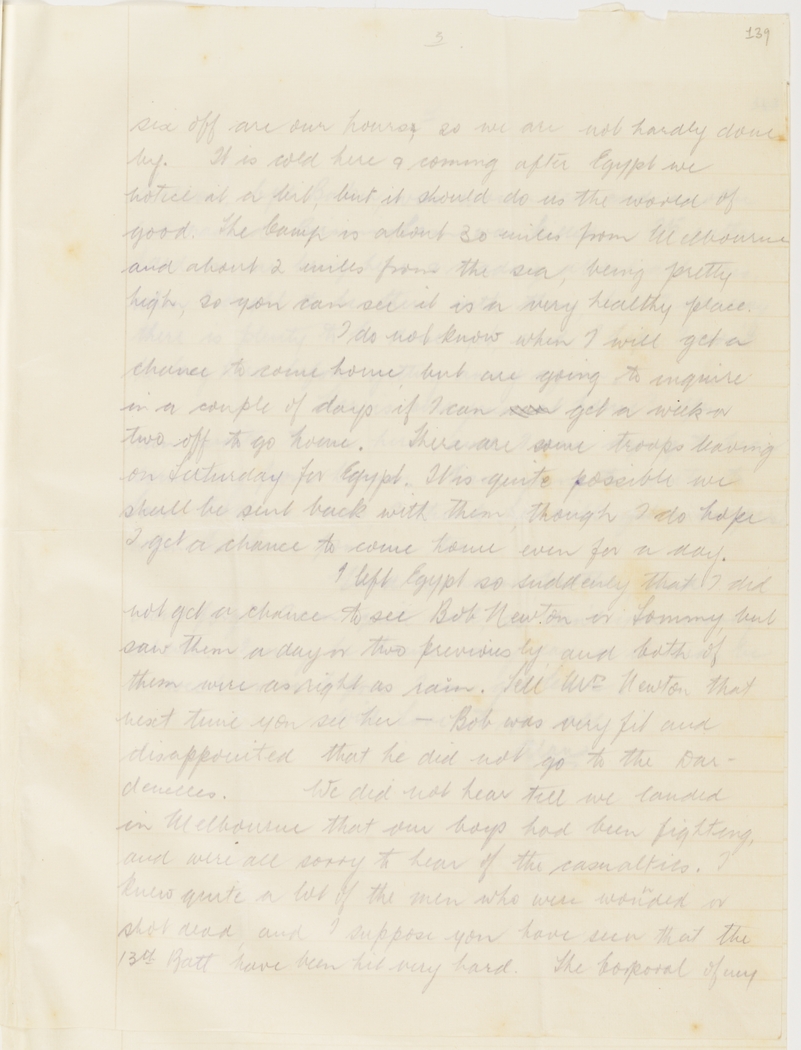 3
139
six off are our hours, so we are not hardly done
by. It is cold here & coming after Egypt we
notice it a bit, but it should do us the world of
good. The Camp is about 30 miles from Melbourne
and about 2 miles from the sea, being pretty
high, so you can see it is a very healthy place.
I do not know when I will get a
chance to come home, but are going to inquire
in a couple of days if I can get a week or
two off to go home. There are some troops leaving
on Saturday for Egypt. It is quite possible we
shall be sent back with them, though I do hope
I get a chance to come home even for a day.
I left Egypt so suddenly that I did
not get a chance to see Bob Newton or Tommy, but
saw them a day or two previously and both of
them were as right as rain. Tell Mrs Newton that
next time you see her — Bob was very fit and
disappointed that he did not go to the Dar-
denelles. We did not hear till we landed
in Melbourne that our boys had been fighting,
and were all sorry to hear of the casualties. I
knew quite a lot of the men who were wounded or
shot dead, and I suppose you have seen that the
13th Batt have been hit very hard. The Corporal of my